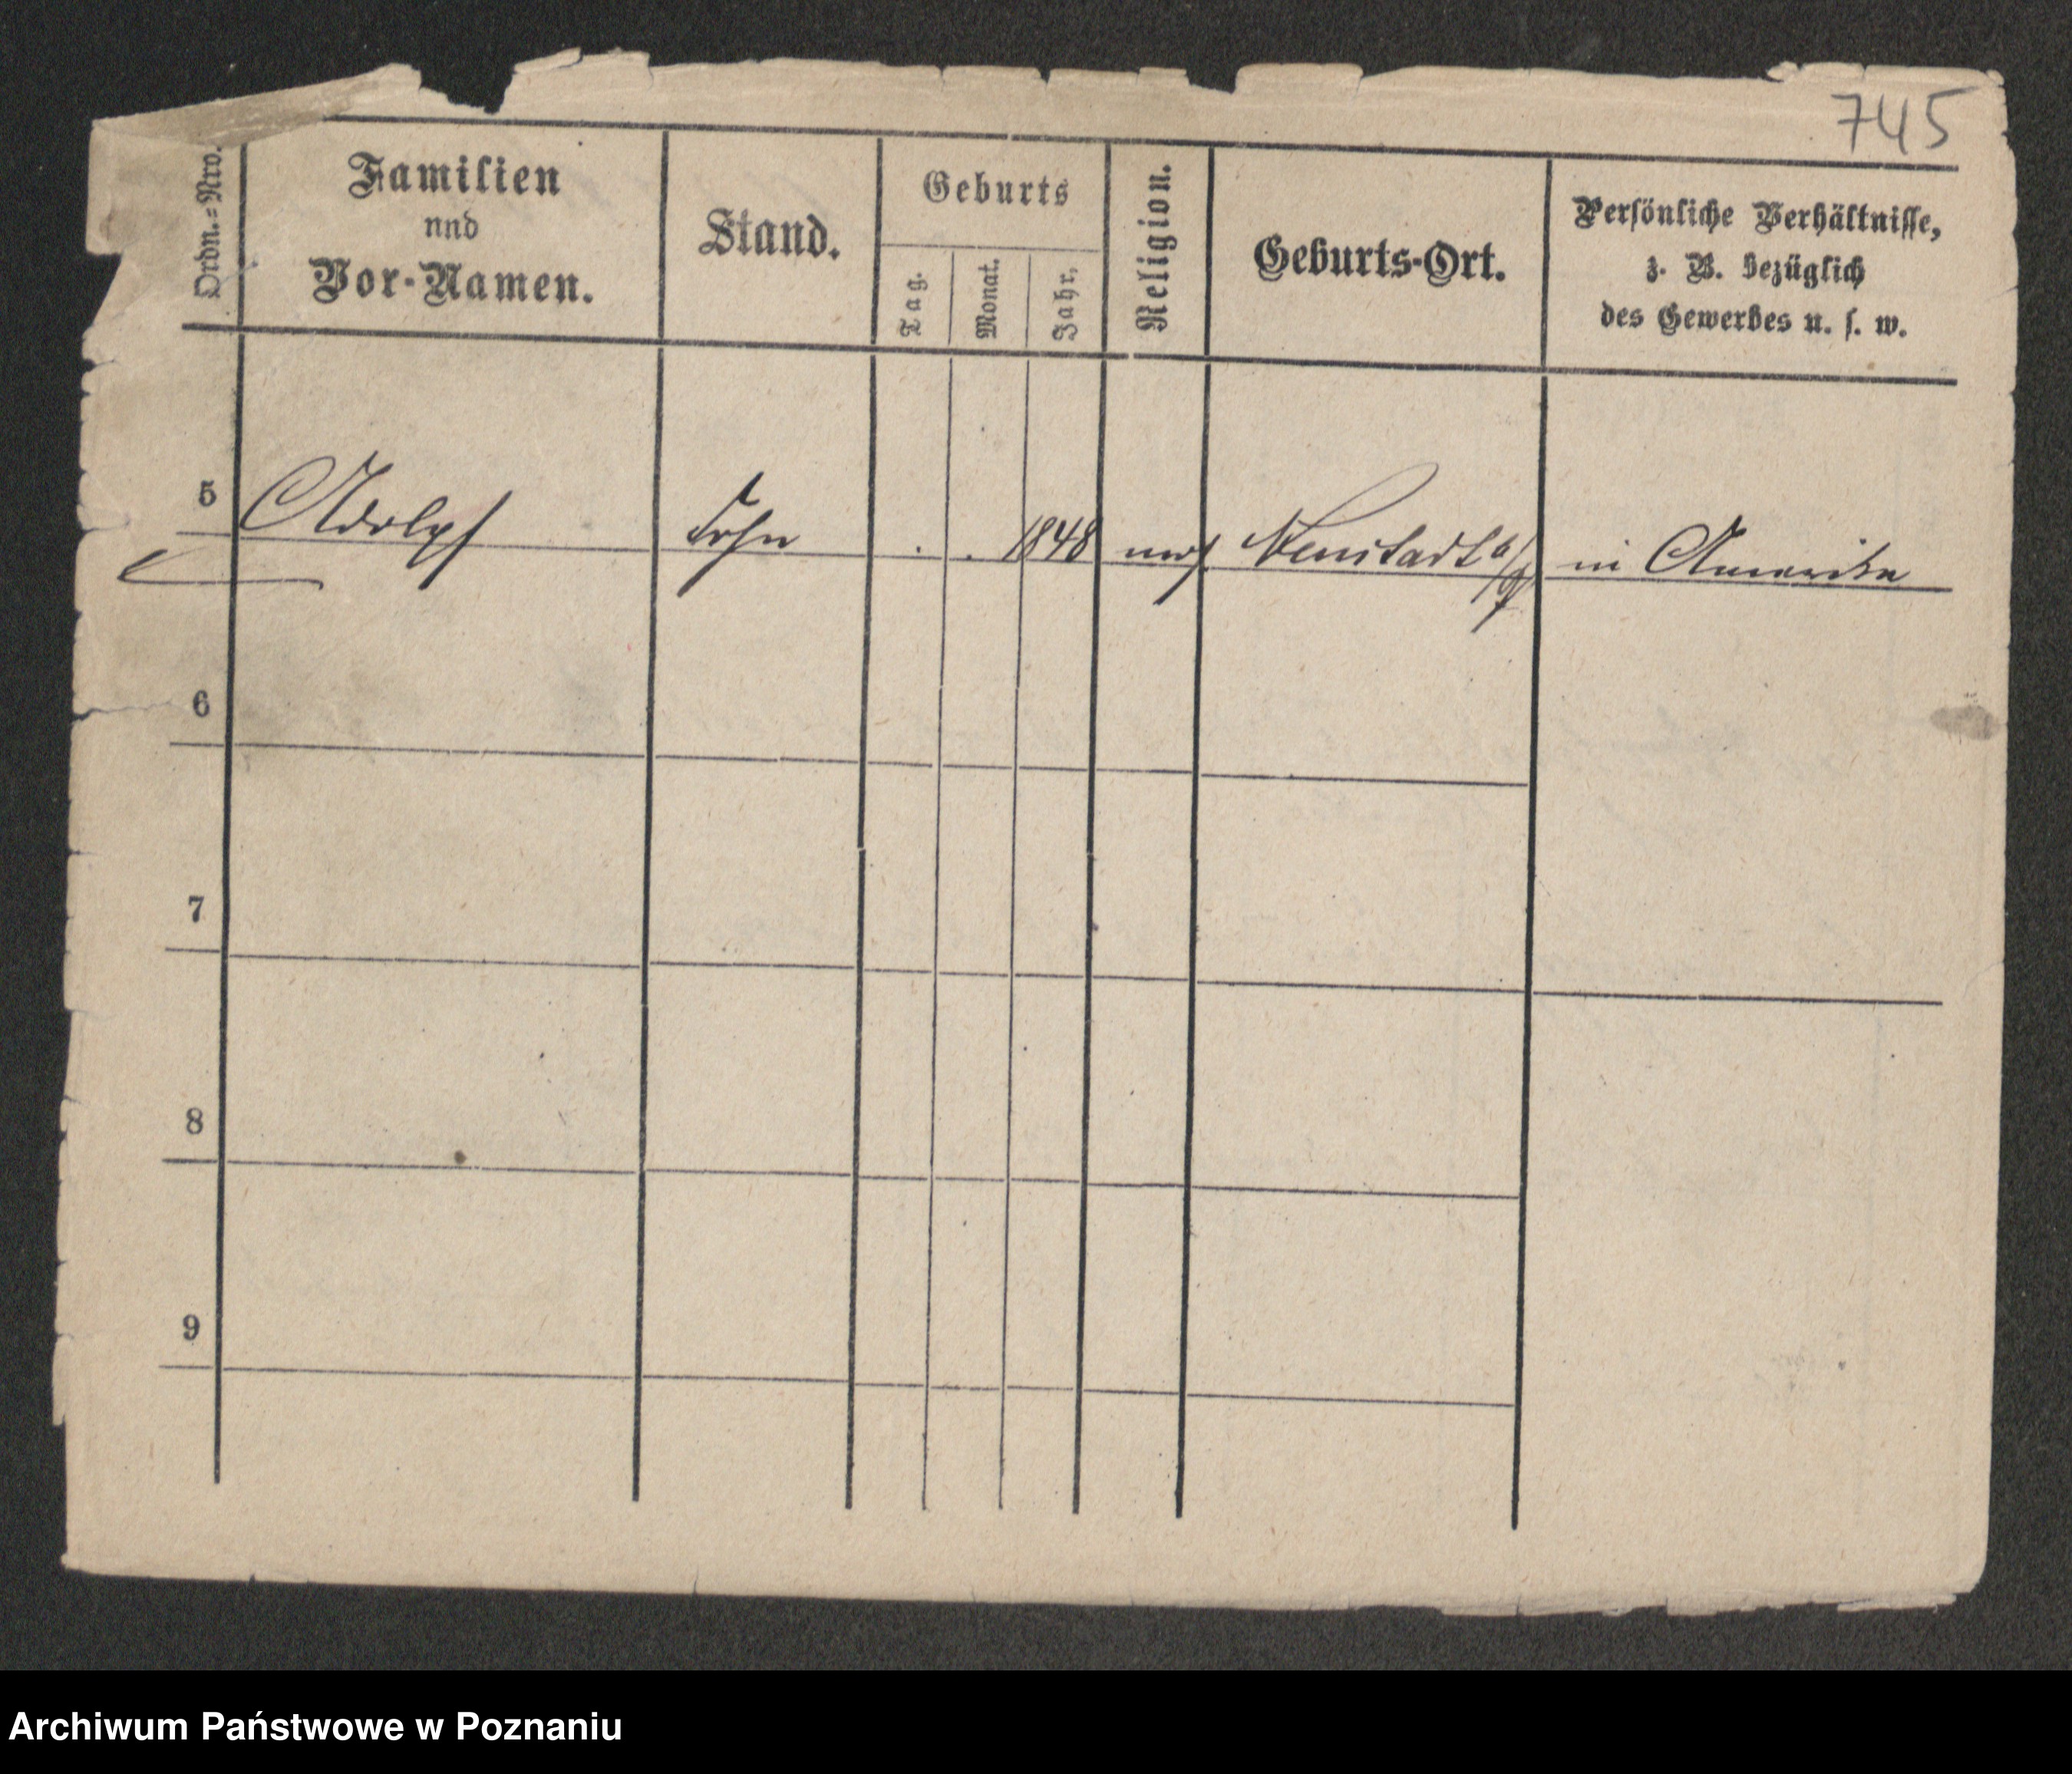 745
Ordn.=Nro.
Familien
und
Vor-Namen.
Stand.
Geburts
Tag.
Monat.
Jahr.
Religion.
Geburts-Ort.
Persönliche Verhältnisse,
z. B. bezüglich
des Gewerbes u. s. w.
5 Adolph Sohn . . 1848 mos. Neustadt b/P in Amerika
6
7
8
9
Archiwum Państwowe w Poznaniu